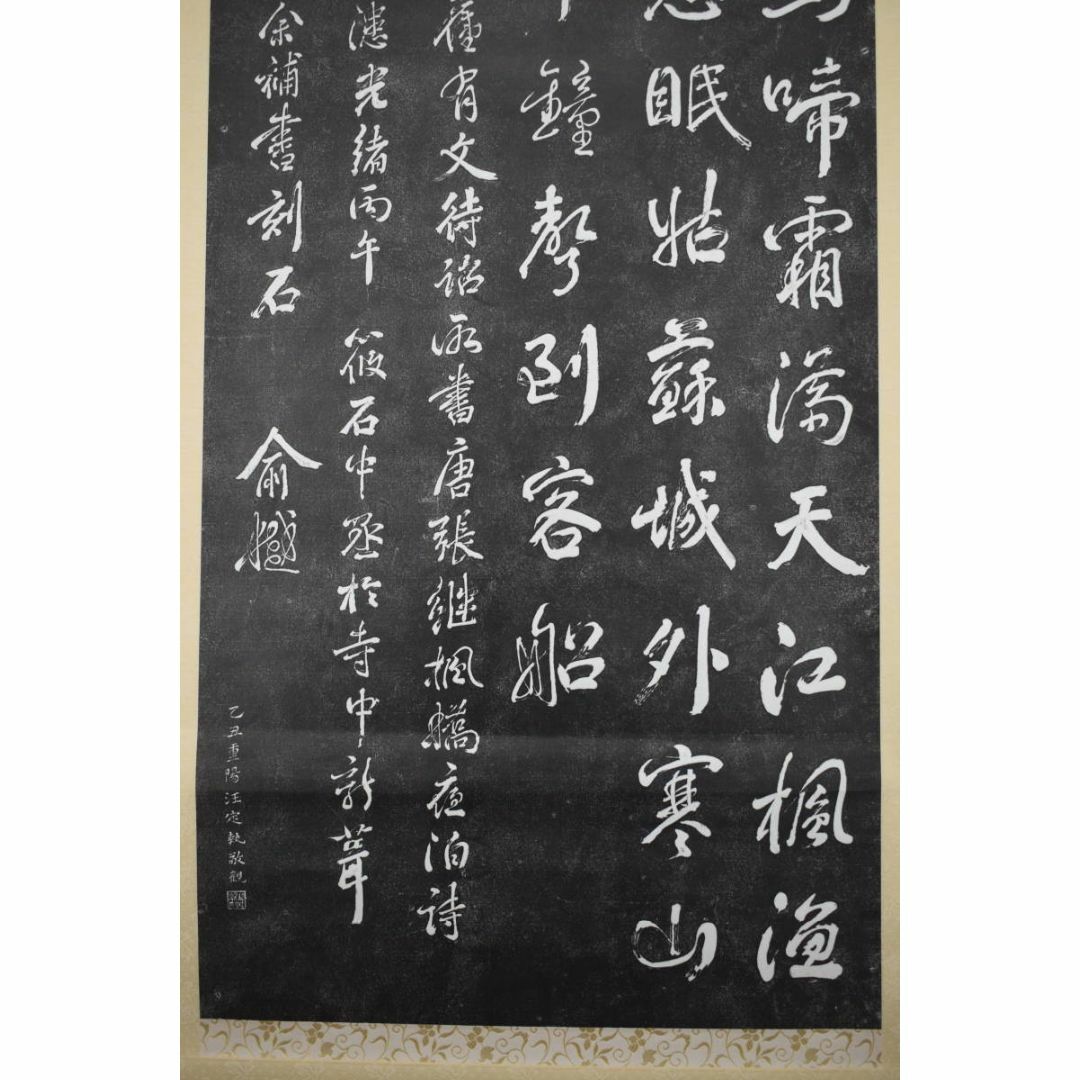 啼霜满天江枫渔
眠姑蘇城外寒山
鐘聲到客船
有文待詔所書唐張継枫橋夜泊詩
漶光緒丙午 筱石中丞於寺中新葺
余補書刻石 俞樾
乙丑重陽汪定執敬觀